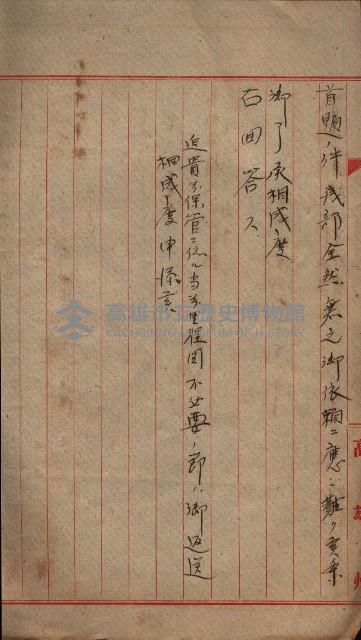 首題ノ件残部全然無之御依頼ニ應ジ難ク貴乗
御了承相成度
右回答ス
追貴方保管ニ係ル当方里程図不必要ノ節ハ御返送
相成度申添フ
高雄州
高雄市立歷史博物館
KAOHSIUNG MUSEUM OF HISTORY